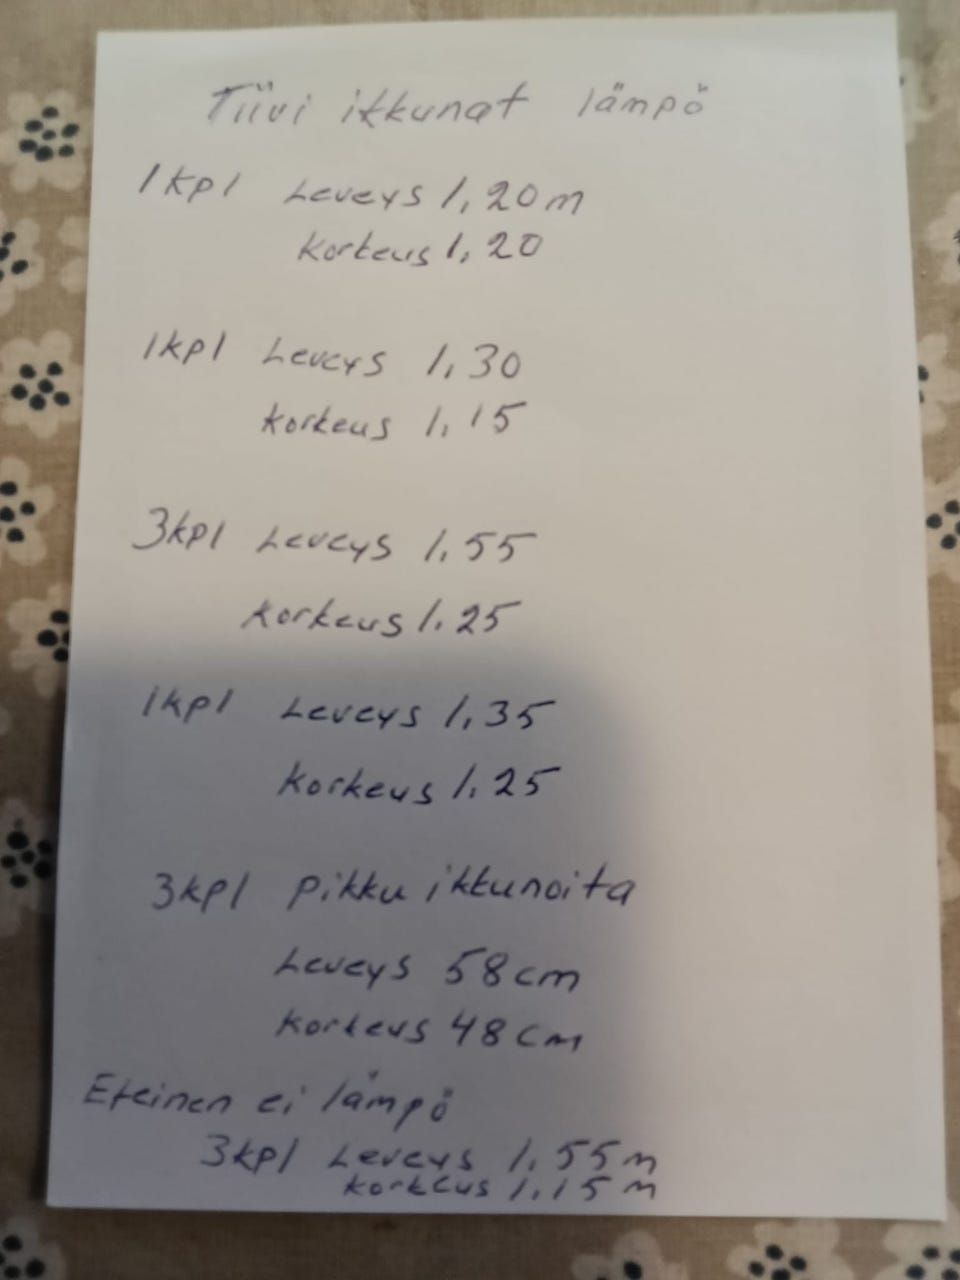 Tiivi ikkunat lämpö
1kpl Leveys 1,20m
Korkeus 1,20
1kpl Leveys 1,30
Korkeus 1,15
3kpl Leveys 1,55
Korkeus 1,25
1kpl Leveys 1,35
Korkeus 1,25
3kpl Pikku ikkunoita
Leveys 58cm
Korkeus 48cm
Eteinen ei lämpö
3kpl Leveys 1,55m
Korkeus 1,15m